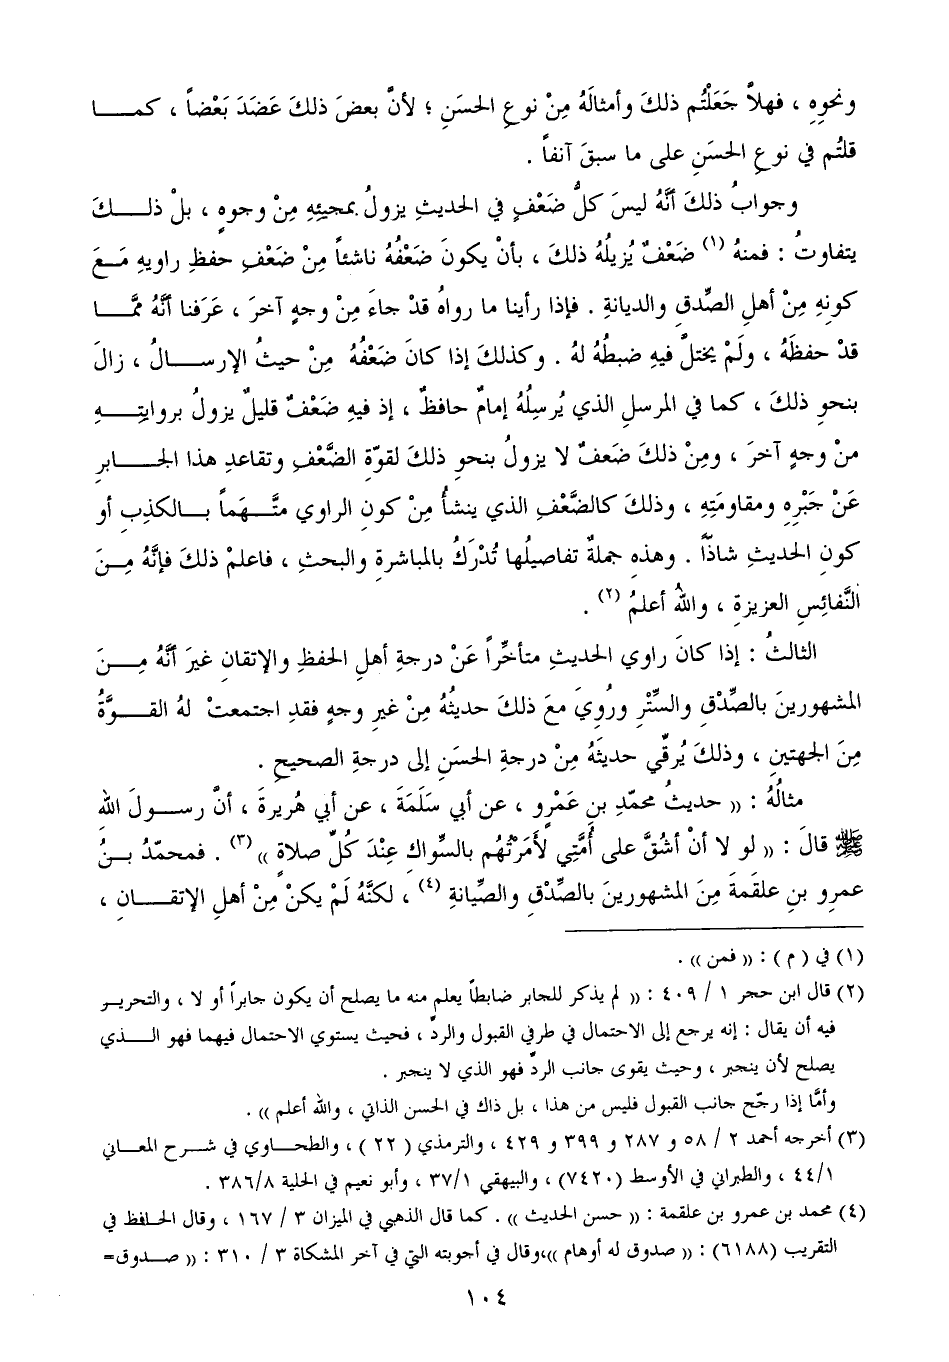 ونحوِهِ ، فهلاَّ جَعَلْتُم ذلكَ وأمثالَهُ مِنْ نوعِ الحسَنِ ؛ لأنَّ بعضَ ذلكَ عَضَدَ بَعْضاً ، كمـا
قلتُم في نوعِ الحسَنِ على ما سبقَ آنفاً .
وجوابُ ذلكَ أنَّهُ ليسَ كلُّ ضَعْفٍ في الحديثِ يزولُ بمجيئِهِ مِنْ وجوهٍ ، بلْ ذلـكَ
يتفاوتُ : فمنهُ (١) ضَعْفٌ يُزيلُهُ ذلكَ ، بأنْ يكونَ ضَعْفُهُ ناشئاً مِنْ ضَعْفِ حفظِ راويهِ مـعَ
كونِهِ مِنْ أهلِ الصِّدقِ والديانةِ . فإذا رأينا ما رواهُ قدْ جاءَ مِنْ وجهٍ آخرَ ، عَرَفنا أنَّهُ ممَّـا
قدْ حفظَهُ ، ولَمْ يختلَّ فيهِ ضبطُهُ لهُ . وكذلكَ إذا كانَ ضَعْفُهُ مِنْ حيثُ الإرسـالُ ، زالَ
بنحوِ ذلكَ ، كما في المرسلِ الذي يُرسِلُهُ إمامٌ حافظٌ ، إذ فيهِ ضَعْفٌ قليلٌ يزولُ بروايتِـهِ
منْ وجهٍ آخرَ ، ومِنْ ذلكَ ضَعفٌ لا يزولُ بنحوِ ذلكَ لقوَّةِ الضَّعْفِ وتقاعدِ هذا الجـابرِ
عَنْ جَبْرِهِ ومقاومَتِهِ ، وذلكَ كالضَّعْفِ الذي ينشأُ مِنْ كونِ الراوي متَّـهَماً بـالكذِبِ أو
كونِ الحديثِ شاذّاً . وهذه جملةٌ تفاصيلُها تُدْرَكُ بالمباشرةِ والبحثِ ، فاعلمْ ذلكَ فإنَّهُ مِـنَ
النَّفائِسِ العزيزةِ ، واللهُ أعلمُ (٢) .
الثالثُ : إذا كانَ راوي الحديثِ متأخِّراً عَنْ درجةِ أهلِ الحفظِ والإتقانِ غيرَ أنَّهُ مِـنَ
المشهورينَ بالصِّدْقِ والسِّتْرِ ورُوِيَ معَ ذلكَ حديثُهُ مِنْ غيرِ وجهٍ فقدِ اجتمعتْ لهُ القـوَّةُ
مِنَ الجهتينِ ، وذلكَ يُرقِّي حديثَهُ مِنْ درجةِ الحسَنِ إلى درجةِ الصحيحِ .
مثالُهُ : (( حديثُ محمَّدِ بنِ عَمْرٍو ، عن أبي سَلَمَةَ ، عن أبي هُريرةَ ، أنَّ رسـولَ اللهِ
ﷺ قالَ : (( لو لا أنْ أشُقَّ على أُمَّتِي لأَمَرْتُهُم بالسِّواكِ عِنْدَ كُلِّ صلاةٍ )) (٣) . فمحمَّدُ بـنُ
عمرِو بنِ علقمةَ مِنَ المشهورينَ بالصِّدْقِ والصِّيانةِ (٤) ، لكنَّهُ لَمْ يكنْ مِنْ أهلِ الإتقـانِ ،
(١) في ( م ) : (( فمن )) .
(٢) قال ابن حجر ١ / ٤٠٩ : (( لم يذكر للجابر ضابطاً يعلم منه ما يصلح أن يكون جابراً أو لا ، والتحريـر
فيه أن يقال : إنه يرجع إلى الاحتمال في طرفي القبول والردّ ، فحيث يستوي الاحتمال فيهما فهو الـذي
يصلح لأن ينجبر ، وحيث يقوى جانب الردّ فهو الذي لا ينجبر .
وأمَّا إذا رجّح جانب القبول فليس من هذا ، بل ذاك في الحسن الذاتي ، والله أعلم )) .
(٣) أخرجه أحمد ٢ / ٥٨ و ٢٨٧ و ٣٩٩ و ٤٢٩ ، والترمذي ( ٢٢ ) ، والطحاوي في شـرح المعاني
٤٤/١ ، والطبراني في الأوسط (٧٤٢٠) ، والبيهقي ٣٧/١ ، وأبو نعيم في الحلية ٣٨٦/٨ .
(٤) محمد بن عمرو بن علقمة : (( حسن الحديث )) . كما قال الذهبي في الميزان ٣ / ١٦٧ ، وقال الحـافظ في
التقريب (٦١٨٨) : (( صدوق له أوهام )) ،وقال في أجوبته التي في آخر المشكاة ٣ / ٣١٠ : (( صـدوق=
١٠٤